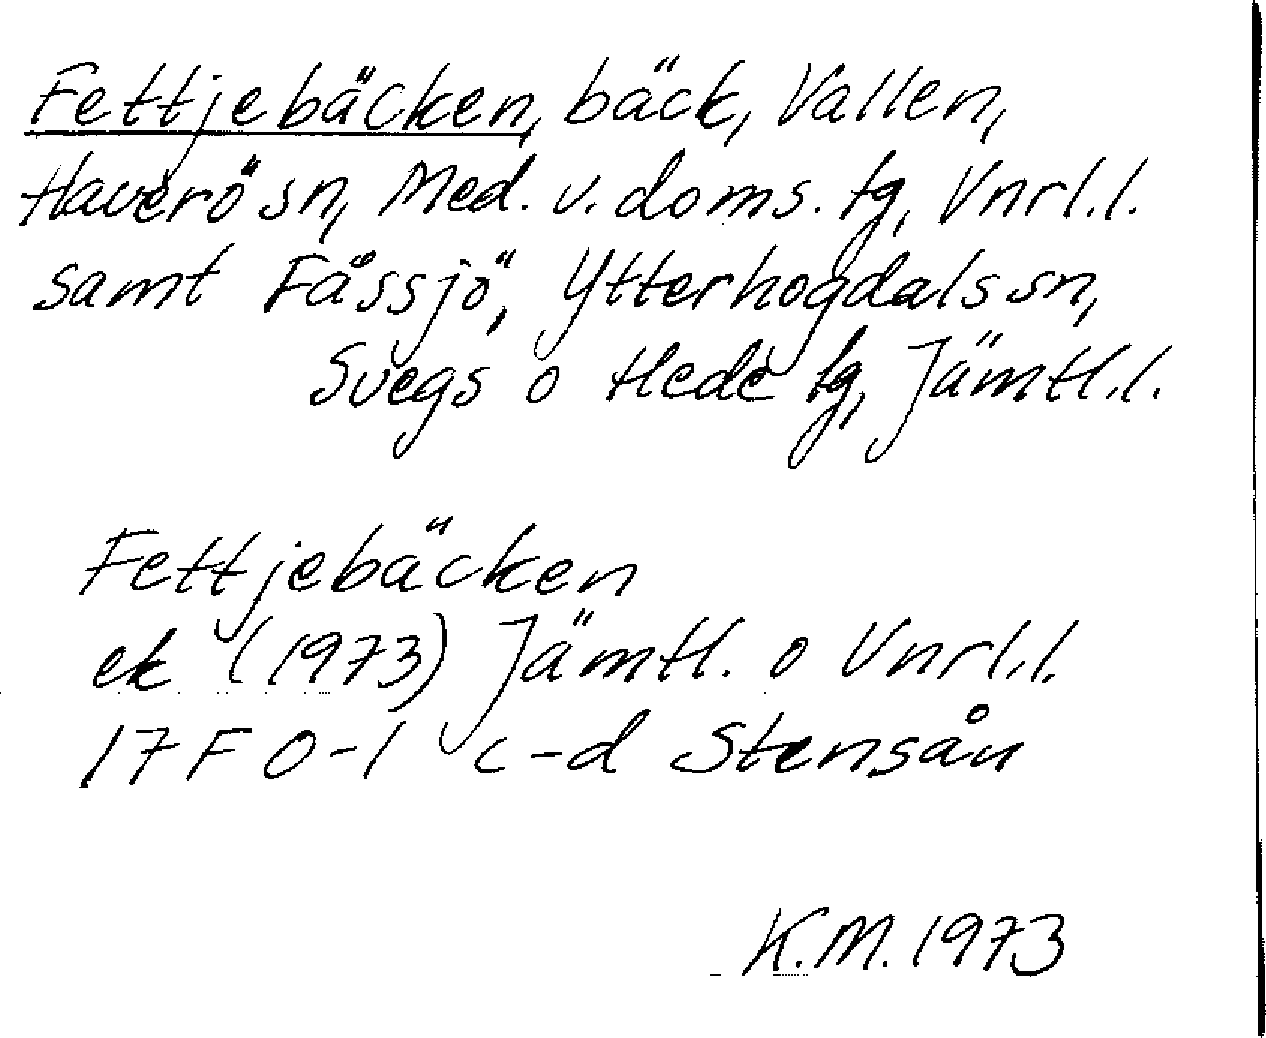 Fettjebäcken, bäck, Vallen,
Haverö sn, Med. v. doms. tg, Vnrl.l.
samt Fåssjö, Ytterhogdals sn,
Svegs o Hede tg, Jämtl.l.
Fettjebäcken
ek (1973) Jämtl. o Vnrl.l.
17F 0-1 c-d Stensån
K.M. 1973